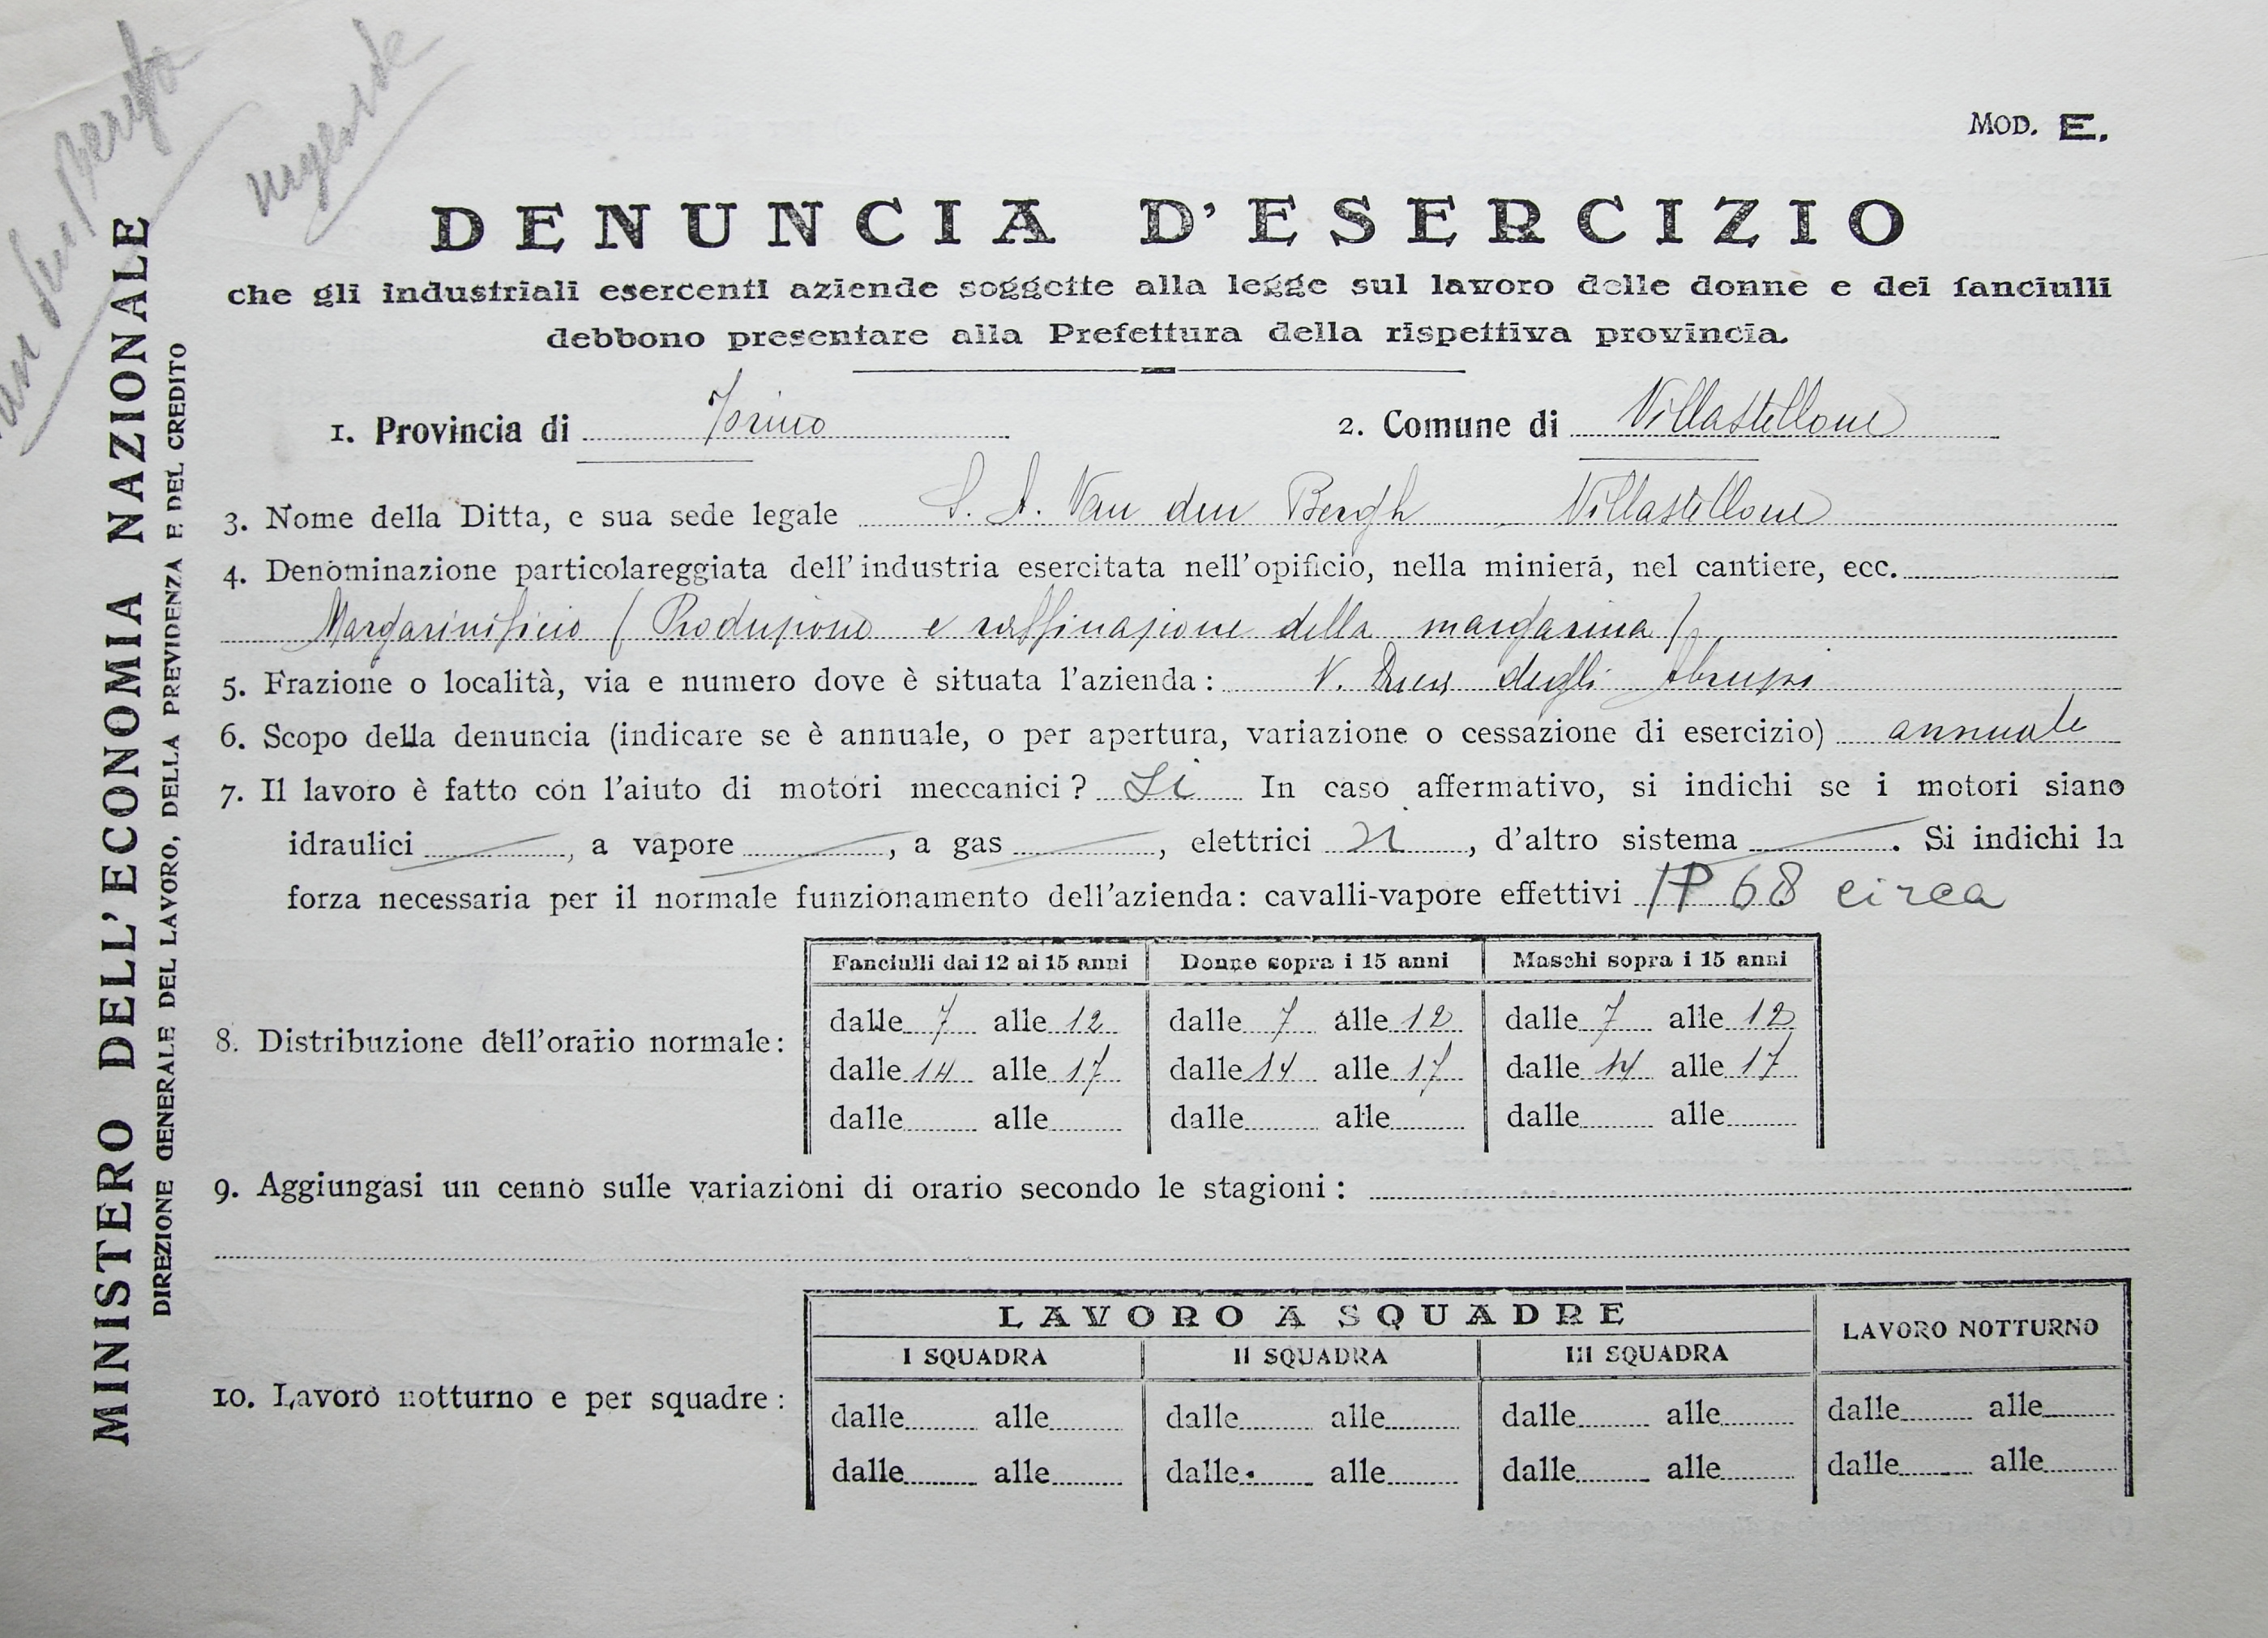 Van den Bergh
urgente
MOD. E.
DENUNCIA D'ESERCIZIO
che gli industriali esercenti aziende soggette alla legge sul lavoro delle donne e dei fanciulli
debbono presentare alla Prefettura della rispettiva provincia.
MINISTERO DELL'ECONOMIA NAZIONALE
DIREZIONE GENERALE DEL LAVORO, DELLA PREVIDENZA E DEL CREDITO
1. Provincia di Torino 2. Comune di Villastellone
3. Nome della Ditta, e sua sede legale S. A. Van den Bergh Villastellone
4. Denominazione particolareggiata dell'industria esercitata nell'opificio, nella miniera, nel cantiere, ecc.
Margarinificio (Produzione e raffinazione della margarina)
5. Frazione o località, via e numero dove è situata l'azienda: V. Duca degli Abruzzi
6. Scopo della denuncia (indicare se è annuale, o per apertura, variazione o cessazione di esercizio) annuale
7. Il lavoro è fatto con l'aiuto di motori meccanici? Si In caso affermativo, si indichi se i motori siano
idraulici , a vapore , a gas , elettrici si , d'altro sistema . Si indichi la
forza necessaria per il normale funzionamento dell'azienda: cavalli-vapore effettivi HP 68 circa
Fanciulli dai 12 ai 15 anni Donne sopra i 15 anni Maschi sopra i 15 anni
8. Distribuzione dell'orario normale:
dalle 7 alle 12 dalle 7 alle 12 dalle 7 alle 12
dalle 14 alle 17 dalle 14 alle 17 dalle 14 alle 17
dalle alle dalle alle dalle alle
9. Aggiungasi un cenno sulle variazioni di orario secondo le stagioni:
LAVORO A SQUADRE LAVORO NOTTURNO
I SQUADRA II SQUADRA III SQUADRA
10. Lavoro notturno e per squadre:
dalle alle dalle alle dalle alle dalle alle
dalle alle dalle alle dalle alle dalle alle